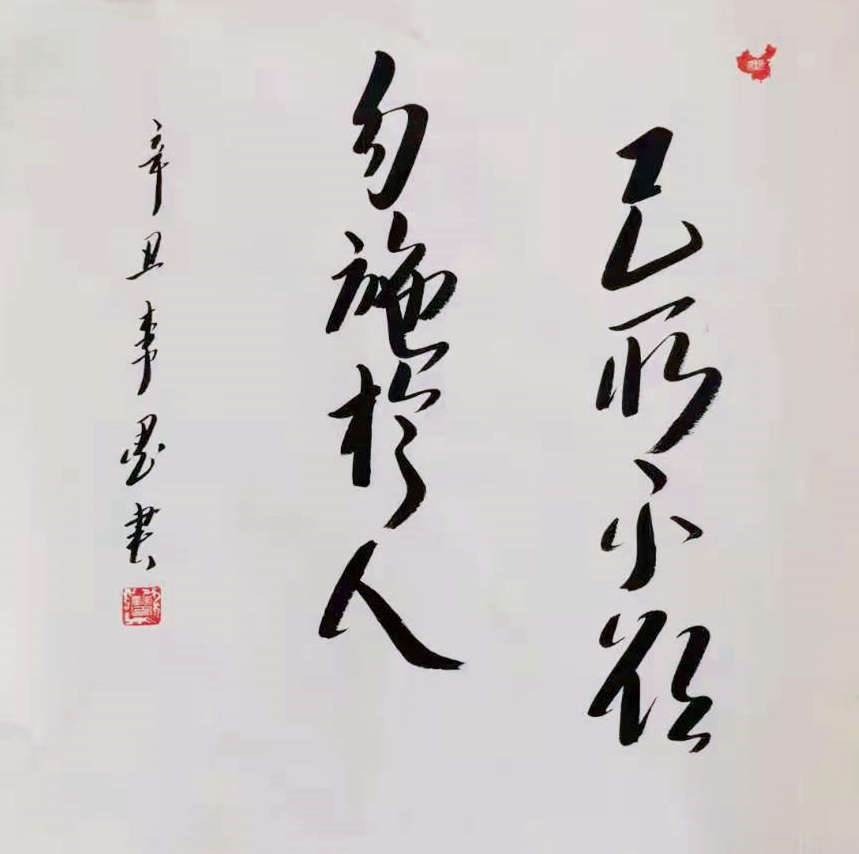 己所不欲
勿施於人
辛丑事墨書